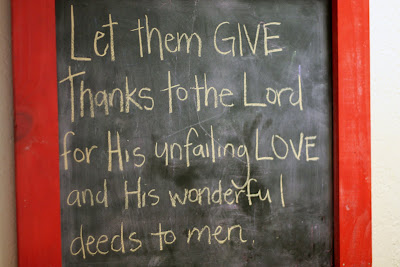 Let them GIVE
Thanks to the Lord
for His unfailing LOVE
and His wonderful
deeds to men.